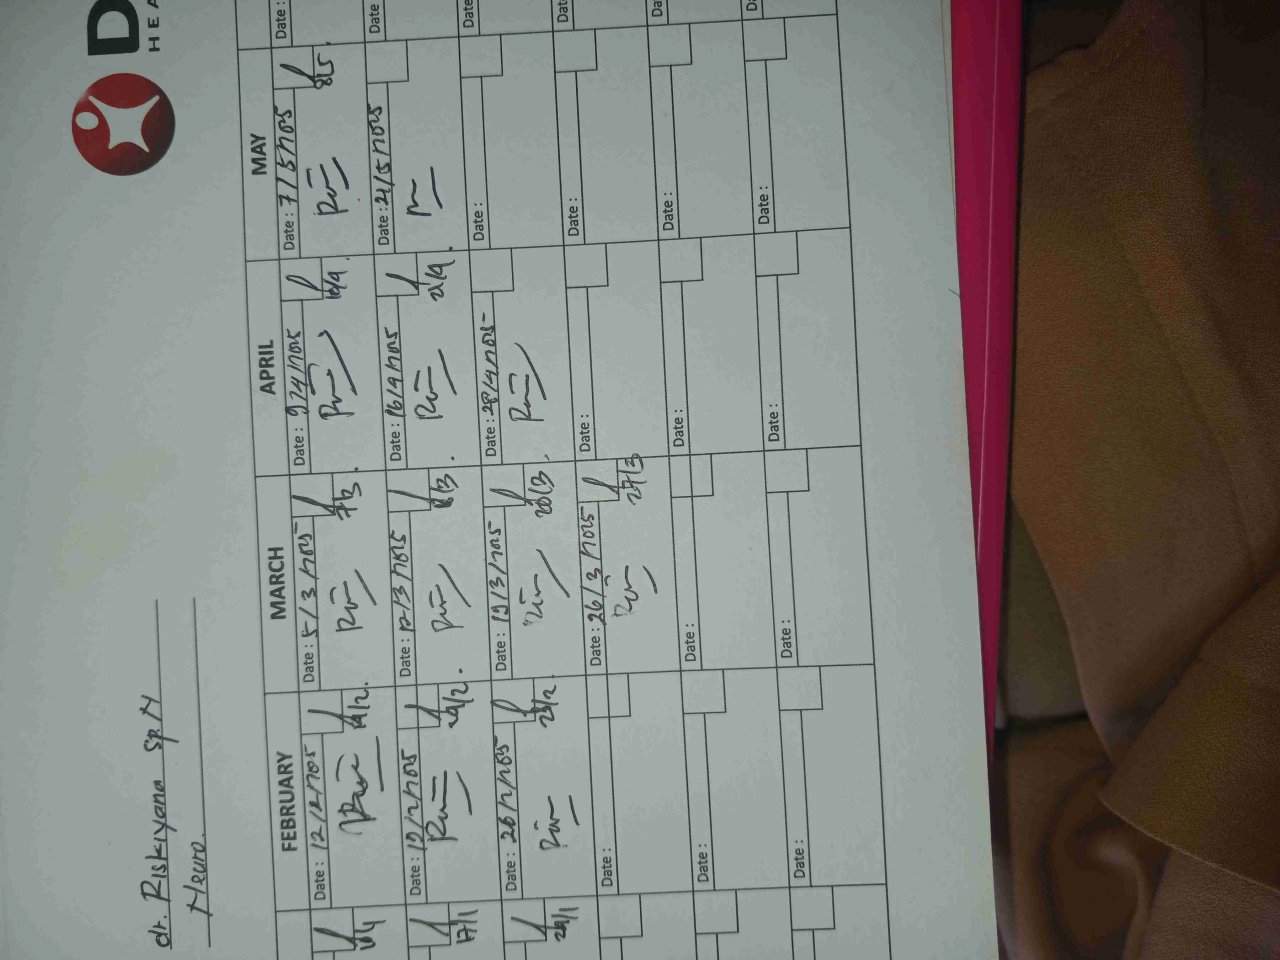 D
HEA
dr. Riskiyana Sp N
Neuro.
FEBRUARY
MARCH
APRIL
MAY
17/1
Date : 12/2/2025
Date : 5/3/2025
7/3.
Date : 9/4/2025
10/4.
Date : 7/5/2025
8/5.
Date :
Date : 19/2/2025
20/2.
Date : 12/3/2025
Date : 16/4/2025
21/4.
Date : 21/5/2025
Date
24/1
Date : 26/2/2025
28/2.
Date : 19/3/2025
20/3.
Date : 28/4/2025
Date :
Date
Date :
Date : 26/3/2025
27/3
Date :
Date :
Dat
Date :
Date :
Date :
Date :
Da
Date :
Date :
Date :
Date :
Da